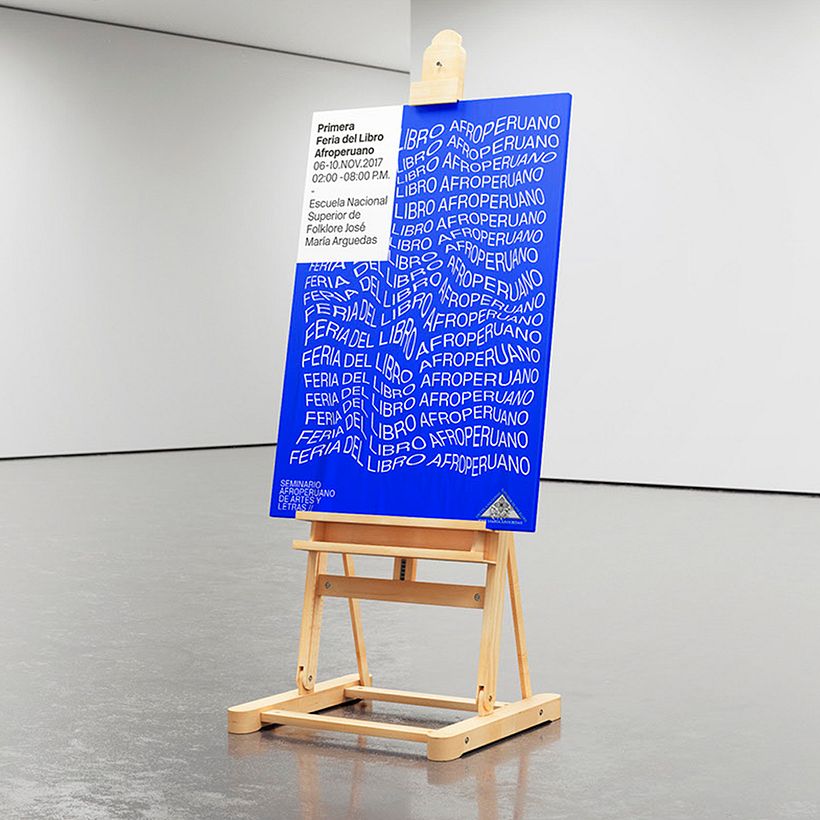 Primera
Feria del Libro
Afroperuano
06-10.NOV.2017
02:00 -08:00 P.M.
-
Escuela Nacional
Superior de
Folklore José
María Arguedas
LIBRO AFROPERUANO
LIBRO AFROPERUANO
LIBRO AFROPERUANO
LIBRO AFROPERUANO
LIBRO AFROPERUANO
LIBRO AFROPERUANO
LIBRO AFROPERUANO
FERIA DEL LIBRO AFROPERUANO
FERIA DEL LIBRO AFROPERUANO
FERIA DEL LIBRO AFROPERUANO
FERIA DEL LIBRO AFROPERUANO
FERIA DEL LIBRO AFROPERUANO
FERIA DEL LIBRO AFROPERUANO
FERIA DEL LIBRO AFROPERUANO
FERIA DEL LIBRO AFROPERUANO
FERIA DEL LIBRO AFROPERUANO
FERIA DEL LIBRO AFROPERUANO
FERIA DEL LIBRO AFROPERUANO
SEMINARIO
AFROPERUANO
DE ARTES Y
LETRAS //